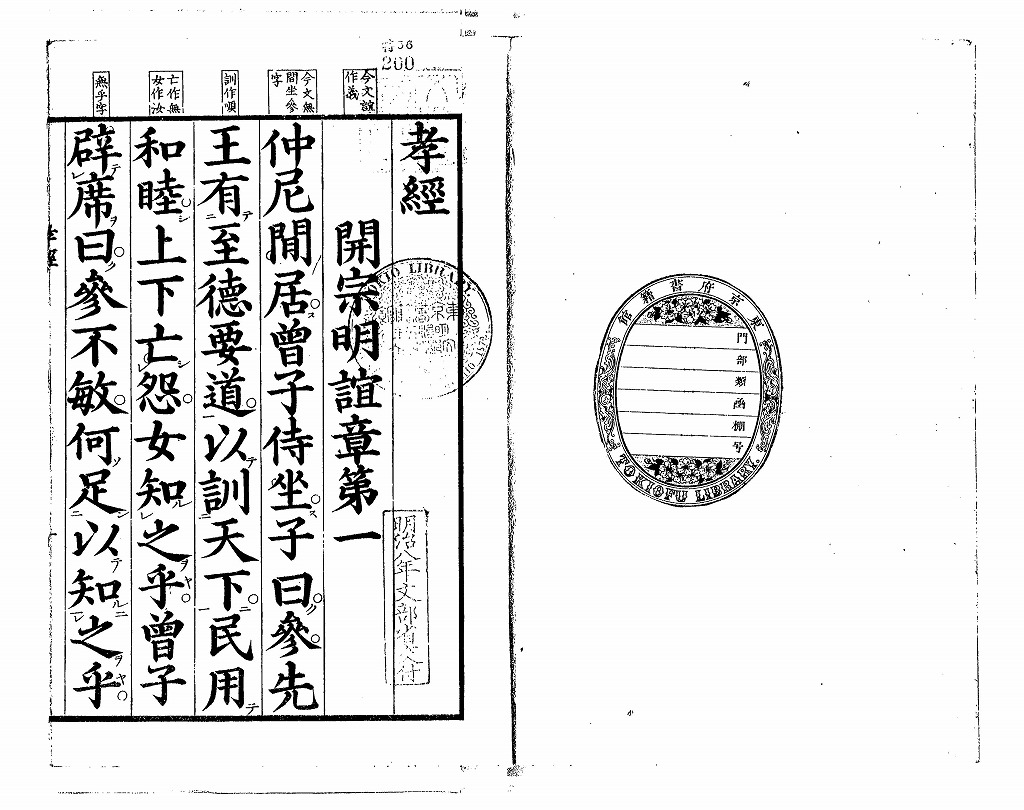 東京府書籍館
門
部
類
函
棚
号
TOKIOFU LIBRARY
特36
260
孝經
開宗明誼章第一
仲尼閒居曾子侍坐子曰參先
王有至德要道以訓天下民用
和睦上下亡怨女知之乎曾子
辟席曰參不敏何足以知之乎
今文誼
作義
今文無
閒坐參
字
訓作順
亡作無
女作汝
無乎字
明治八年文部省交付